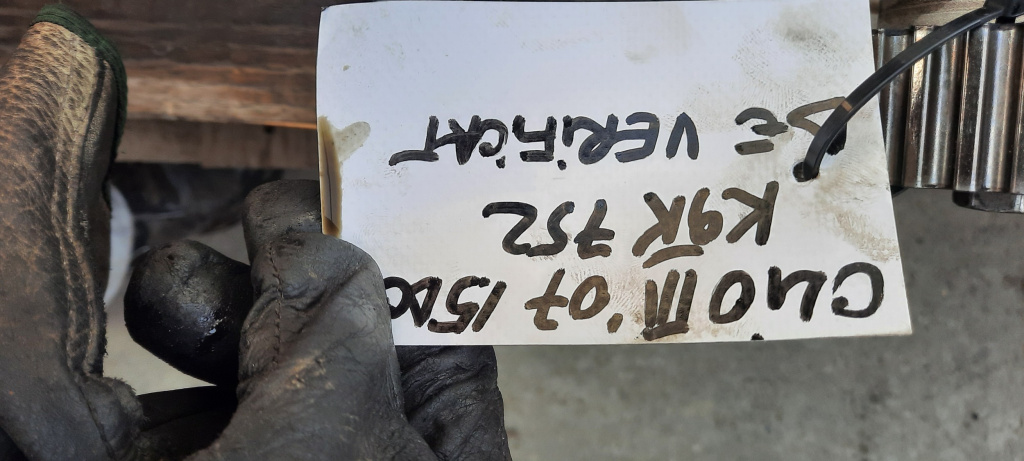 CLiO III '07 15DC
K9K 752
DE VERiFiCAT